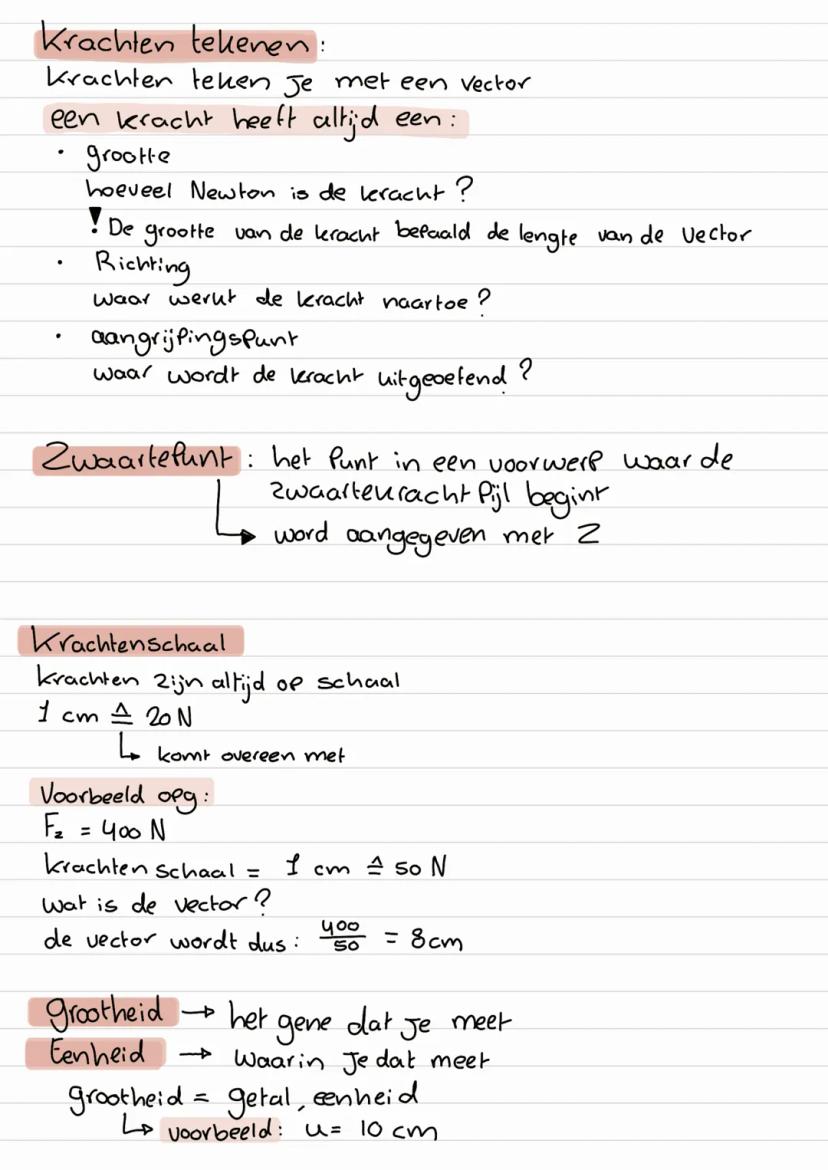 Krachten tekenen:
krachten teken je met een vector
een kracht heeft altijd een:
• grootte
hoeveel Newton is de kracht?
! De grootte van de kracht bepaald de lengte van de vector
• Richting
waar werkt de kracht naartoe?
• aangrijpingspunt
waar wordt de kracht uitgeoefend?
Zwaartepunt: het punt in een voorwerp waar de
zwaartekracht pijl begint
↳ word aangegeven met Z
Krachtenschaal
krachten zijn altijd op schaal
1 cm ≙ 20 N
↳ komt overeen met
Voorbeeld opg:
Fz = 400 N
krachten schaal = 1 cm ≙ 50 N
wat is de vector?
de vector wordt dus: 400/50 = 8cm
grootheid → het gene dat je meet
Eenheid → waarin je dat meet
grootheid = getal, eenheid
↳ voorbeeld: u= 10 cm